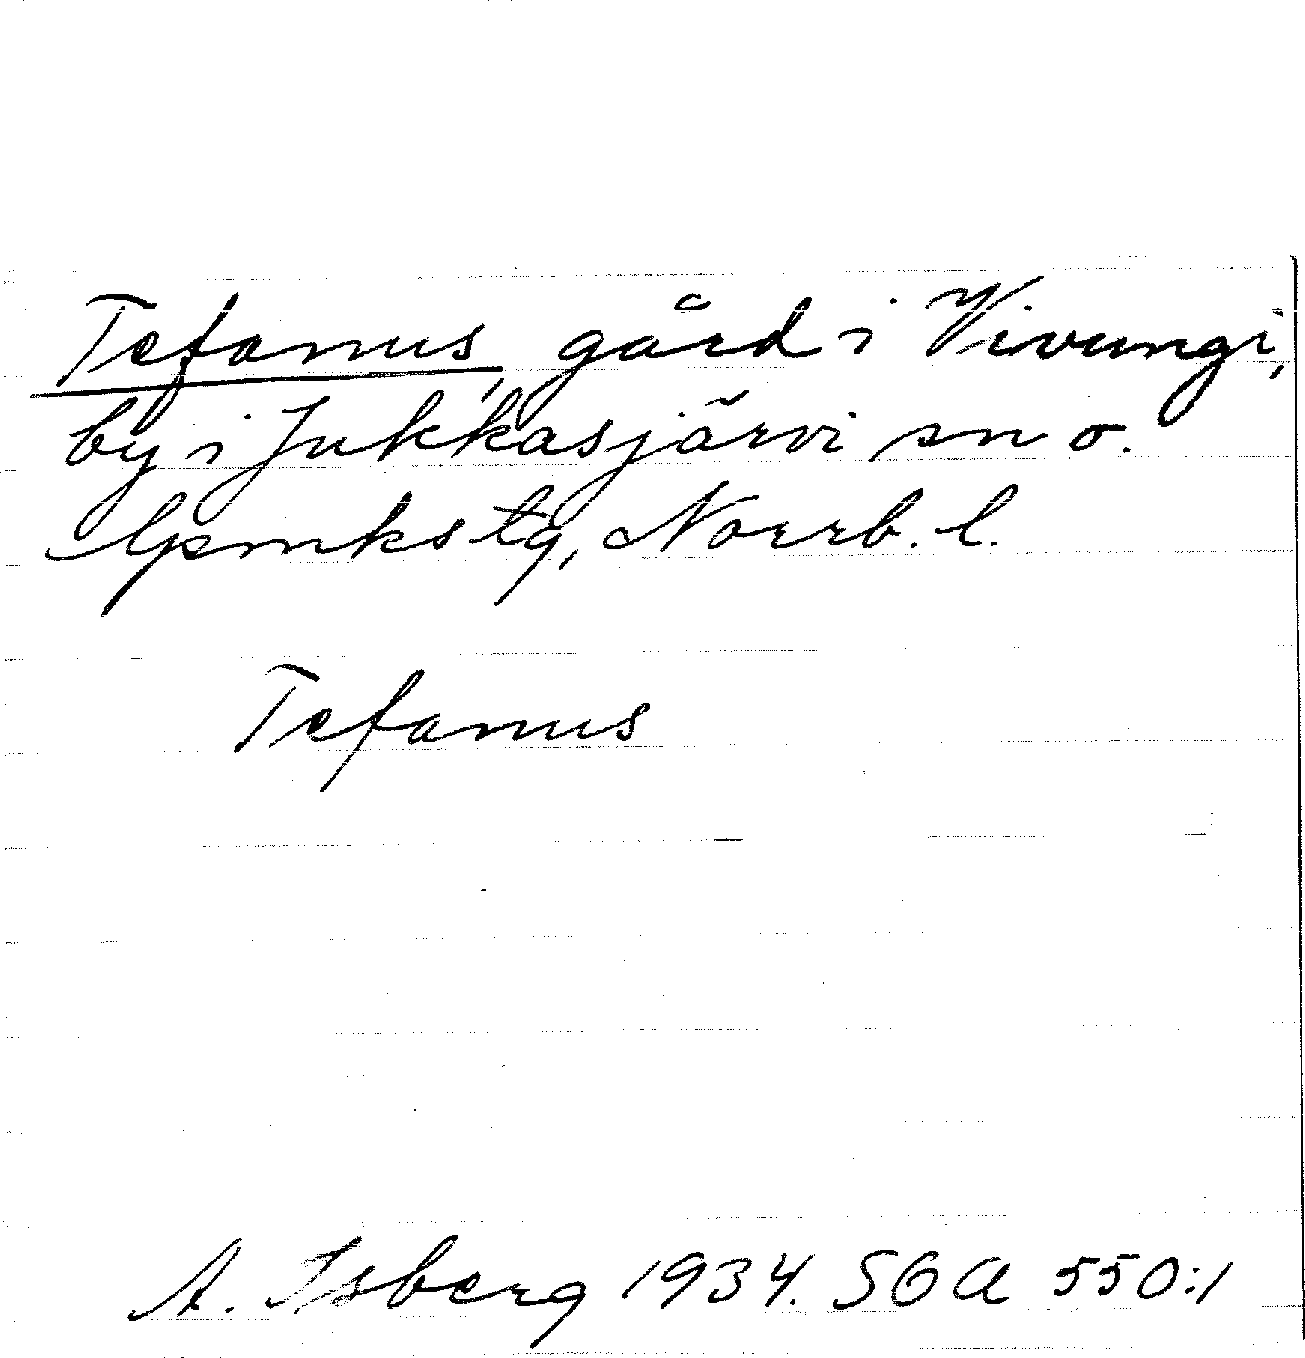 Tefanus, gård i Vivungi,
by i Jukkasjärvi sn o.
lpmkstg, Norrb. l.
Tefanus
A. Isberg 1934. SOA 550:1